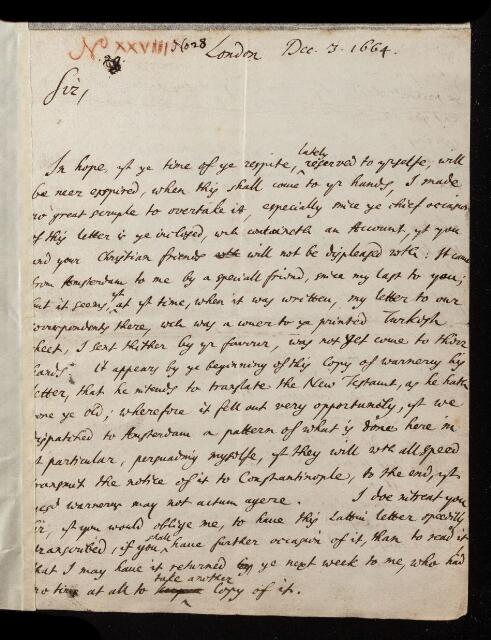 No XXVIII
London Dec. 3. 1664.
Sir,
In hope, yt ye time of ye respite, lately reserved to yrselfe, will
be neer expired, when this shall come to yr hands, I made
no great scruple to overtake it, especially since ye chief occasion
of this letter is ye inclosed, wch containeth an Account, yt you
and your Christian friends will not be displeased wth: It came
from Amsterdam to me by a special friend, since my last to you;
but it seems, yt at yt time, when it was written, my letter to our
correspondents there, wch was a cover to ye printed Turkish
sheet, I sent thither by yr favour, was not yet come to their
hands. It appears by ye beginning of this Copy of warnerus his
letter, that he intends to translate the New Testamt, as he hath
done ye old; wherefore it fell out very opportunely, yt we
dispatched to Amsterdam a pattern of what is done here in
yt particular, persuading myselfe, yt they will wth all speed
transmit the notice of it to Constantinople, to the end, yt
warnerus may not actum agere. I doe intreat you
Sir, yt you would oblige me, to have this Lattin letter speedily
transcribed, if you shall have further occasion of it, than to read it
that I may have it returned by ye next week to me, who had
no time at all to take another Copy of it.